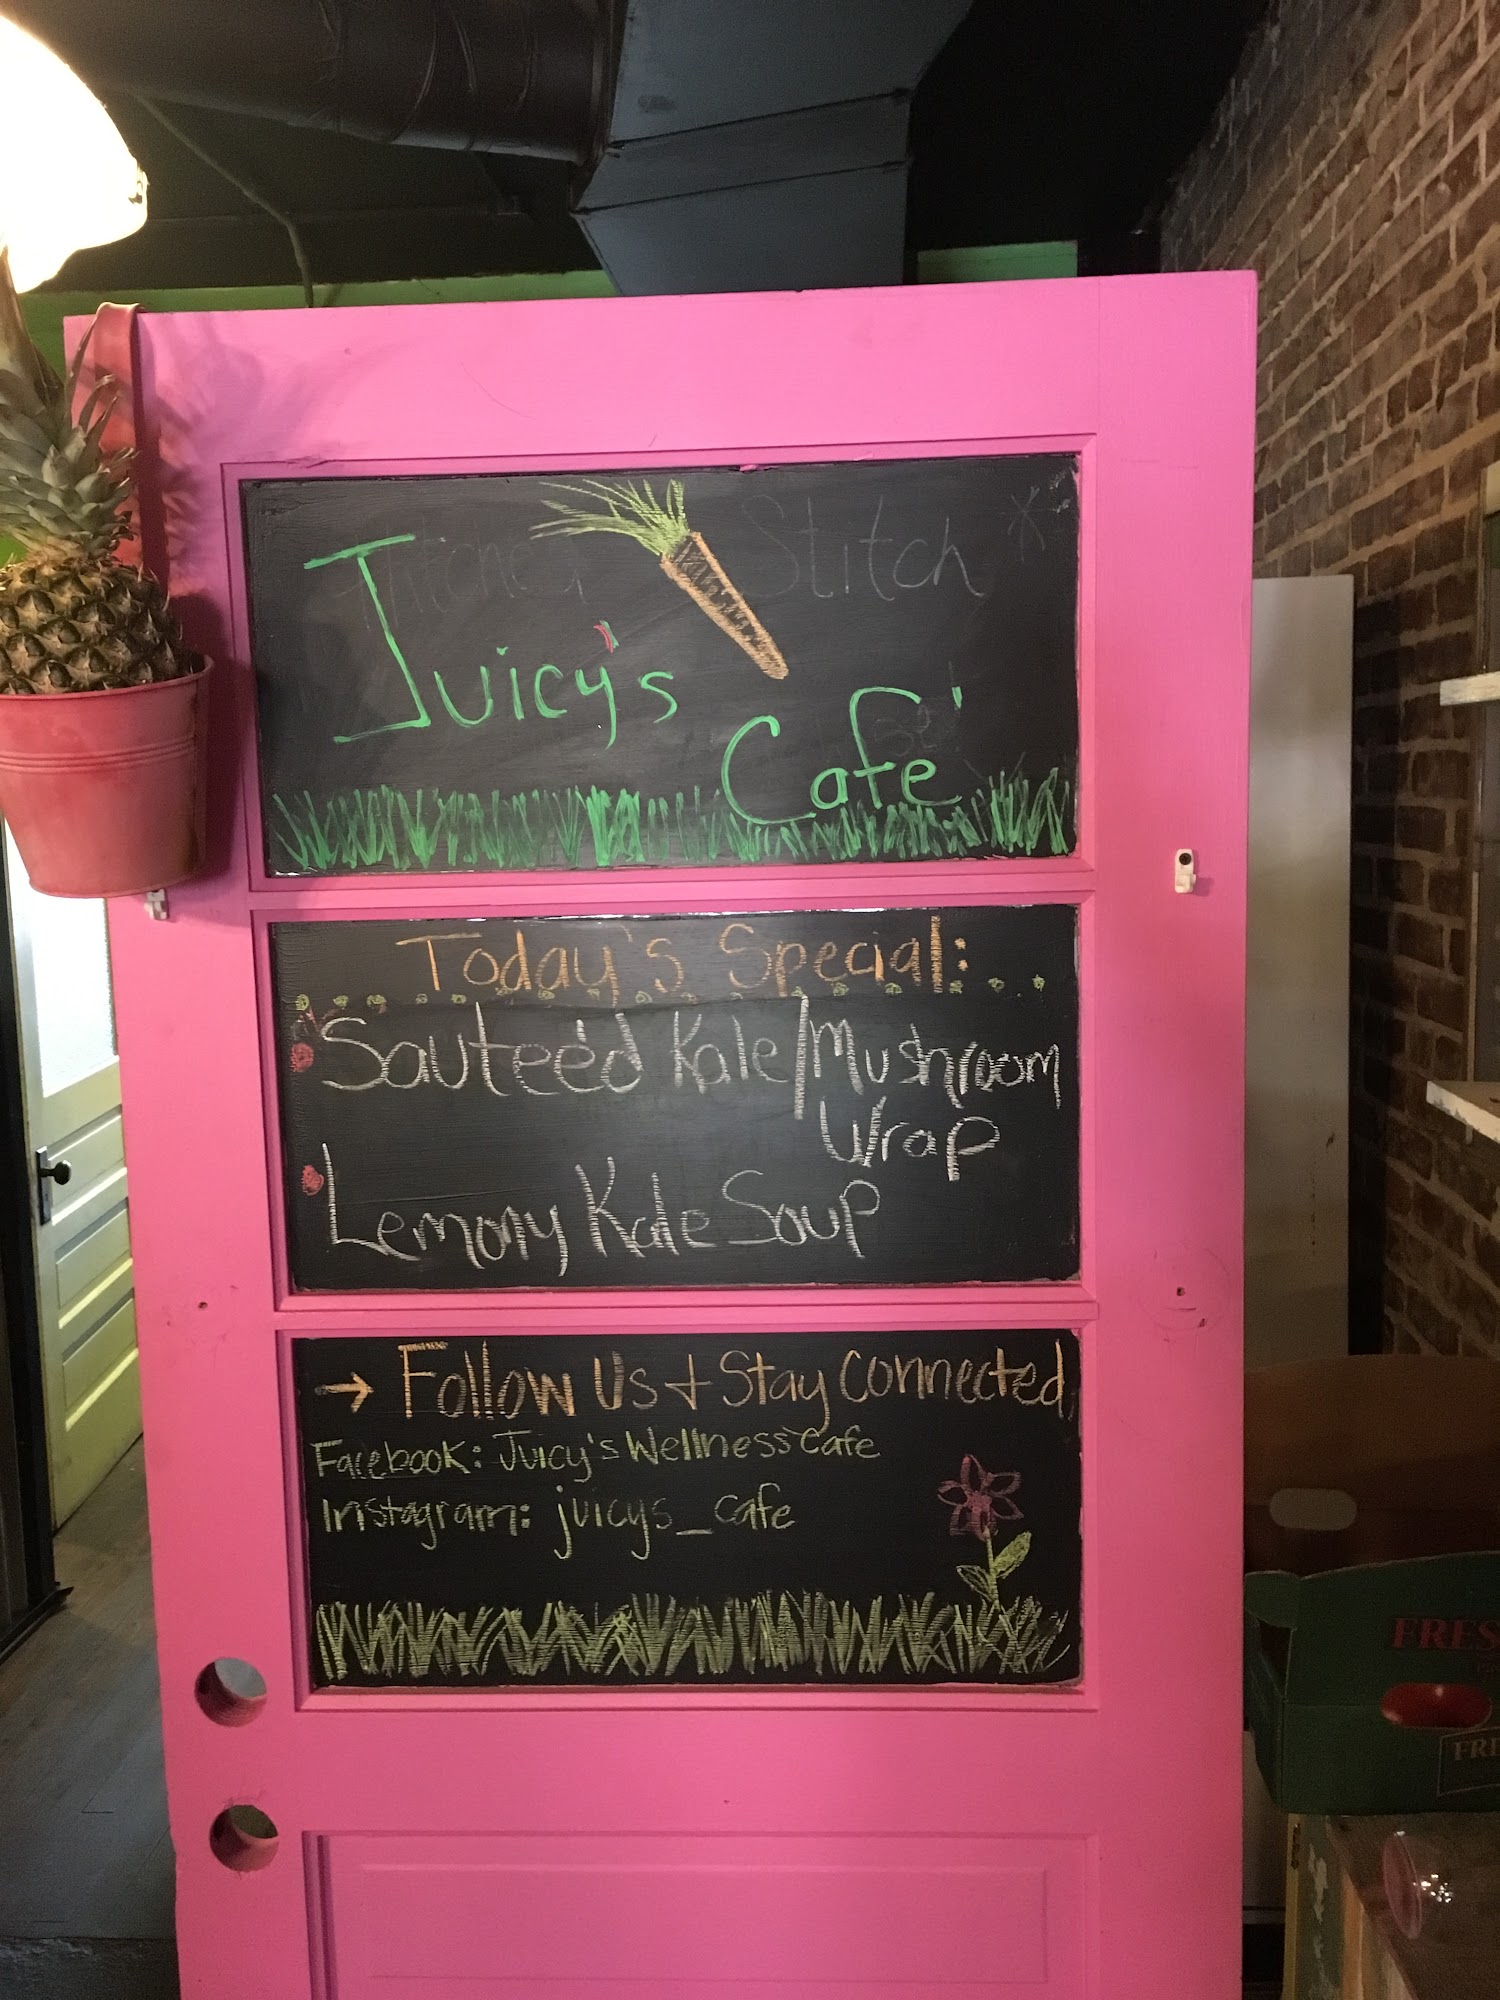 Stitch *
Juicy's
Café
Today's Special:
Sauteé'd Kale/Mushroom
Wrap
Lemony Kale Soup
→ Follow Us + Stay Connected
Facebook: Juicy's Wellness Cafe
Instagram: juicys_cafe
FRES
FRE